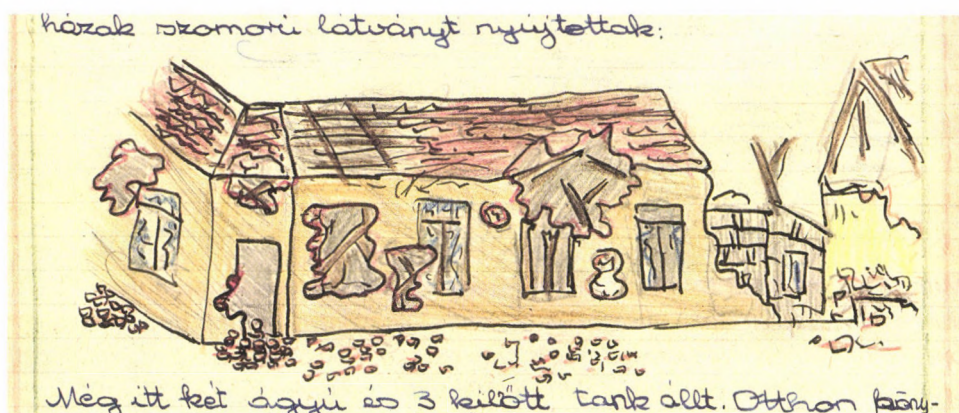 házak szomorú látványt nyújtottak:
Még itt két ágyú és 3 kilőtt tank állt. Otthon